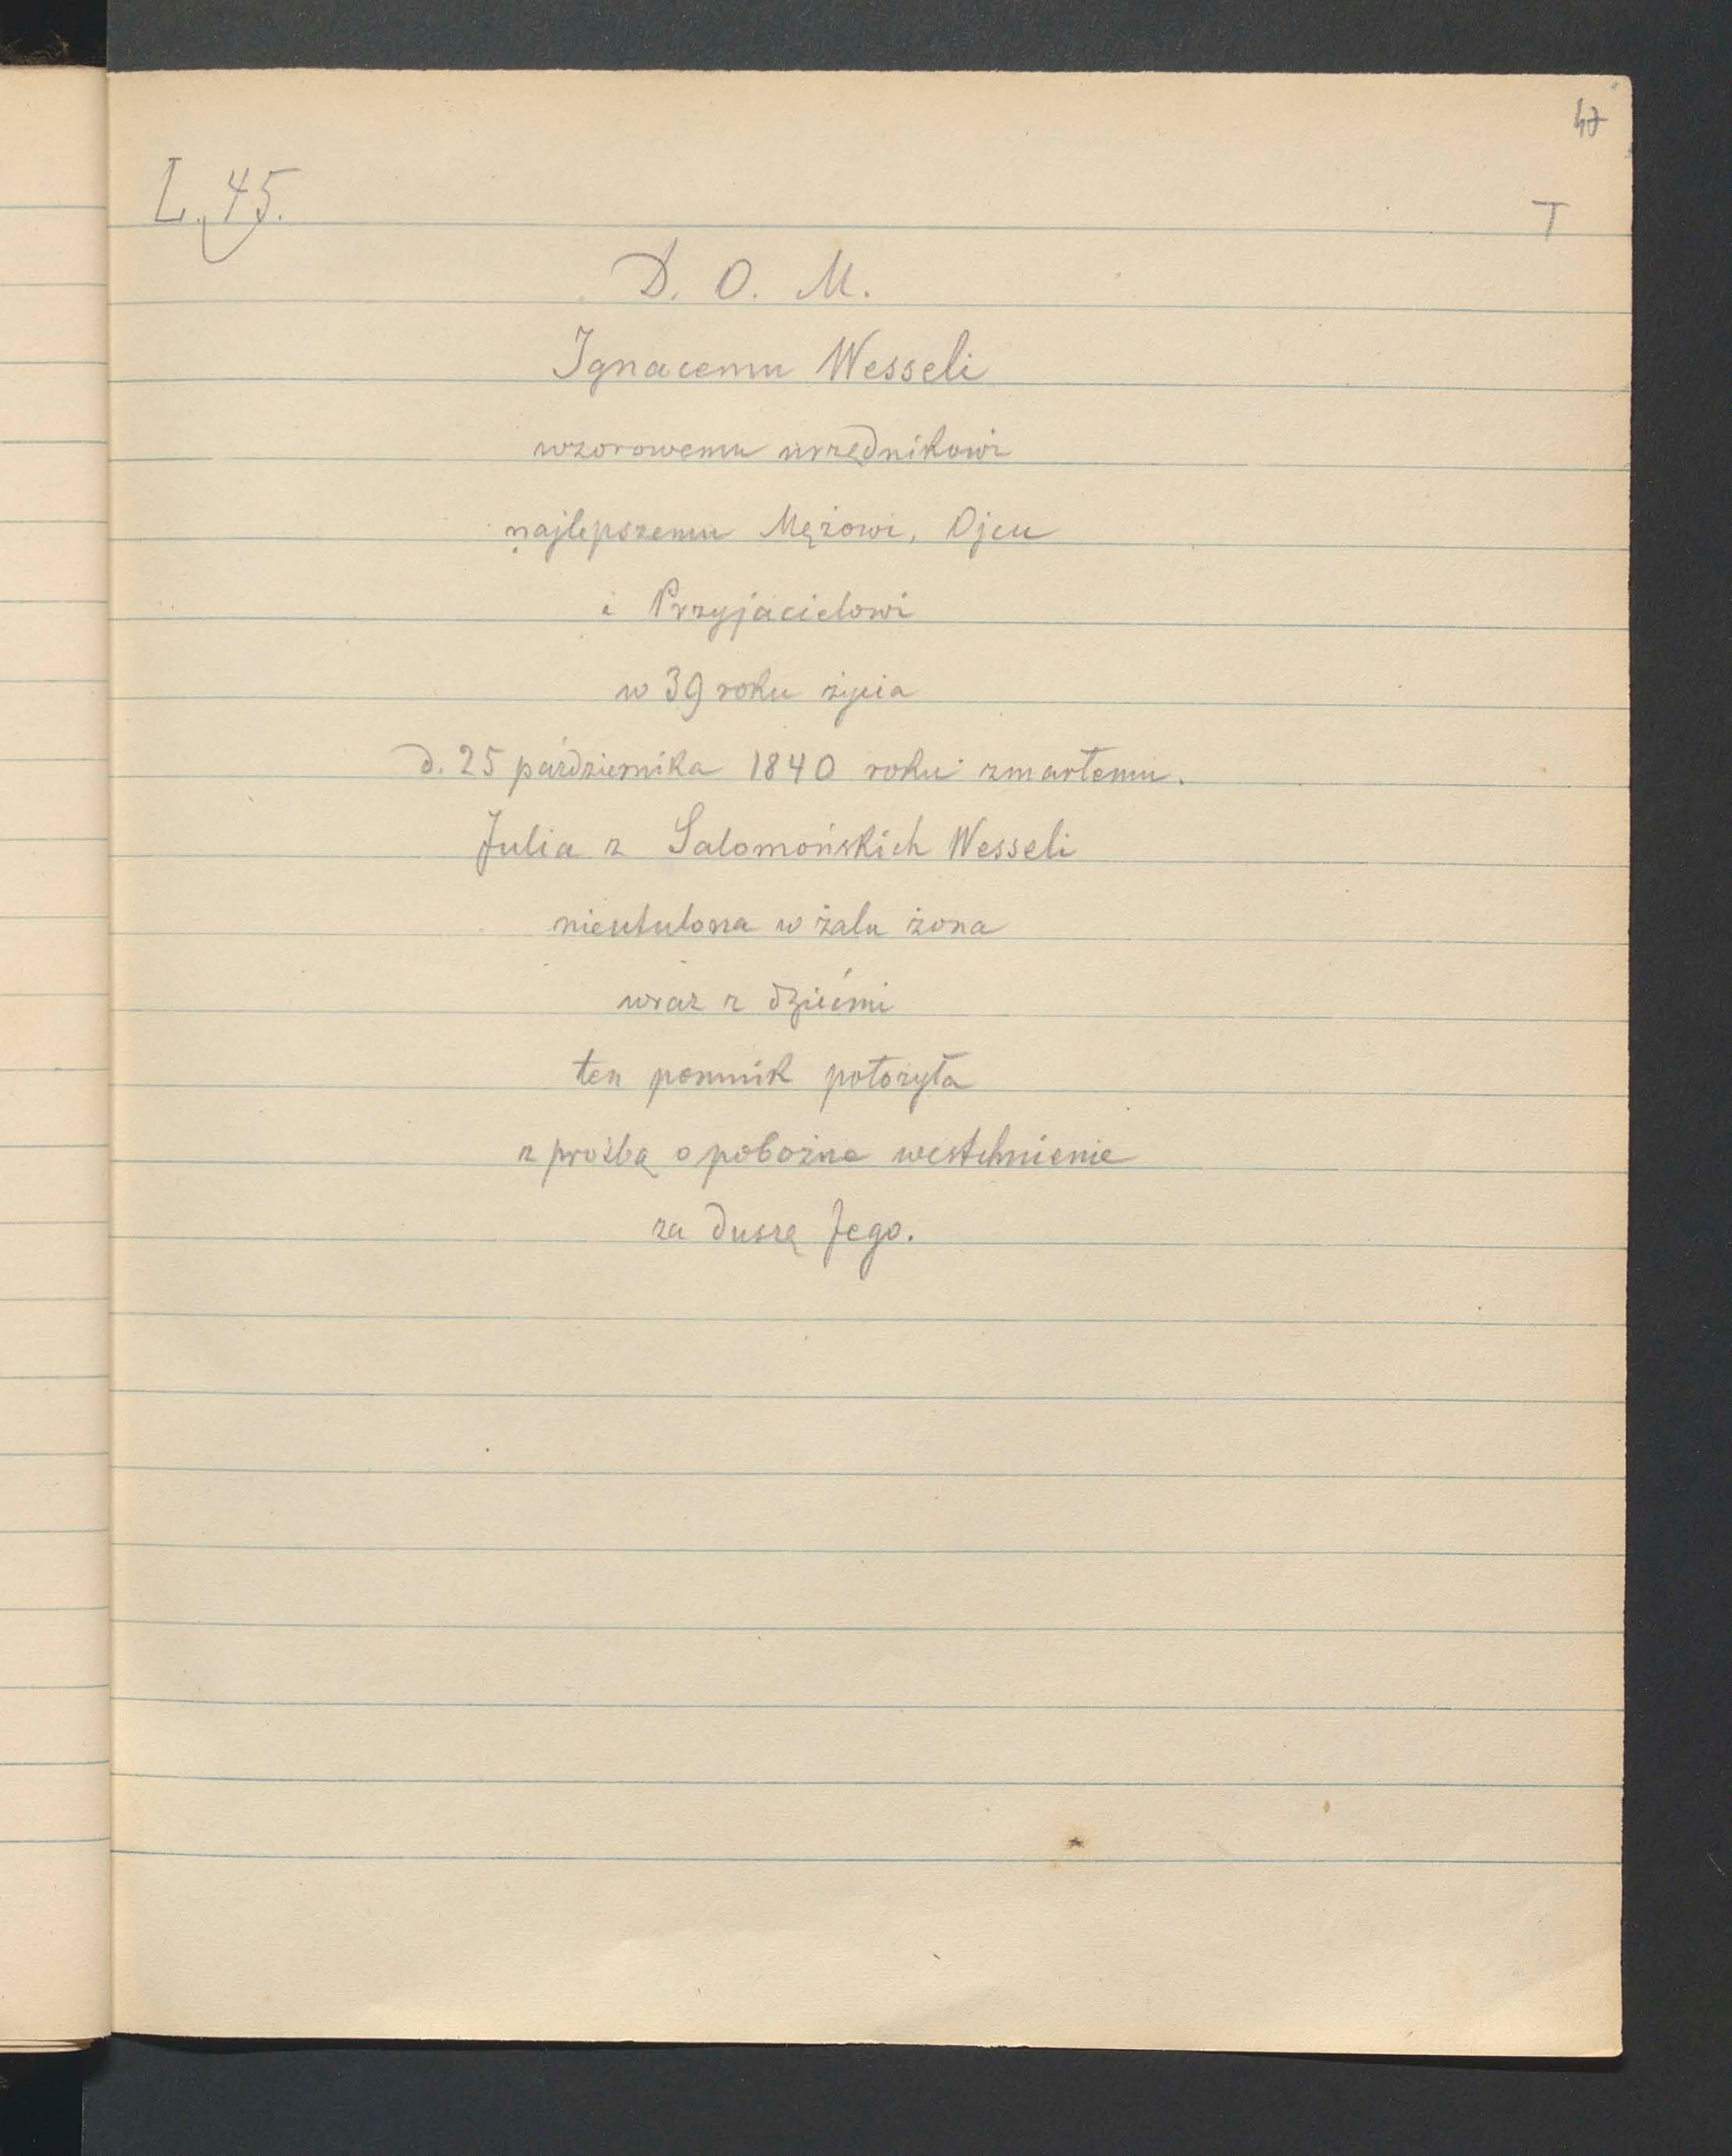 47
L. 45.
T
D. O. M.
Ignacemu Wesseli
wzorowemu urzędnikowi
najlepszemu Mężowi, Ojcu
i Przyjacielowi
w 39 roku życia
d. 25 października 1840 roku zmarłemu.
Julia z Salomońskich Wesseli
nieutulona w żalu żona
wraz z dziećmi
ten pomnik położyła
z prośbą o pobożne westchnienie
za duszę Jego.